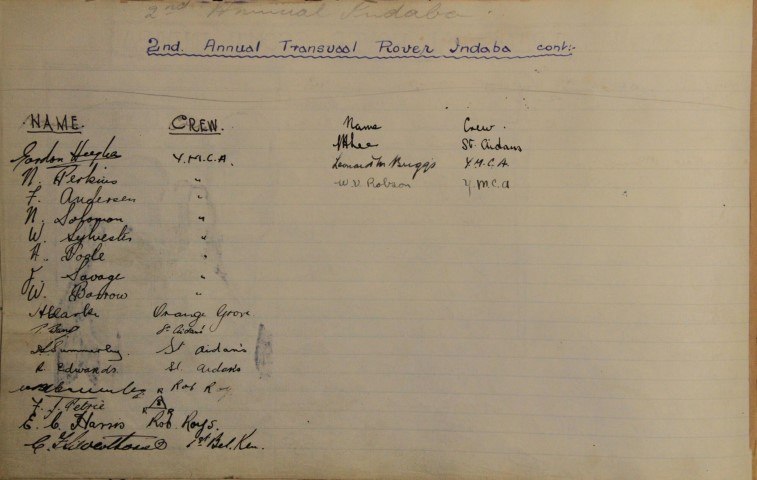 2nd Annual Indaba.
2nd. Annual Transvaal Rover Indaba cont:-
NAME. CREW.
Gordon Hughes Y.M.C.A.
N. Perkins "
F. Andersen "
N. Solomon "
W. Sylvester "
A. Pogle "
J. Savage "
W. Borrow "
Orange Grove
St Aidan's
St Aidan's
R. Edwards St Aidan's
Rob Roy
F. J. Petrie
E. C. Harris Rob. Roys.
1st Bel. Ken.
Name Crew.
St. Aidans
Leonard M. Briggs Y.M.C.A
W. V. Robson Y.M.C.A